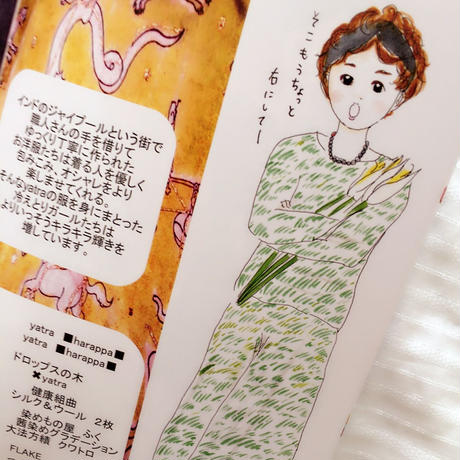 インドのジャイプールという街で
職人さんの手を借りて
ゆっくり丁寧に作られた
お洋服たちは着る人を優しく
包みこみ、オシャレをより
楽しませてくれる。
そんなyatraの服を身にまとった
冷えとりガールたちは
よりいっそうキラキラ輝きを
増しています。
yatra ■harappa■
yatra ■harappa■
ドロップスの木
✖yatra
健康組曲
シルク&ウール 2枚
染めもの屋 ふく
茜染めグラデーション
大法方績 クワトロ
FLAKE
そこもうちょっと
右にしてー